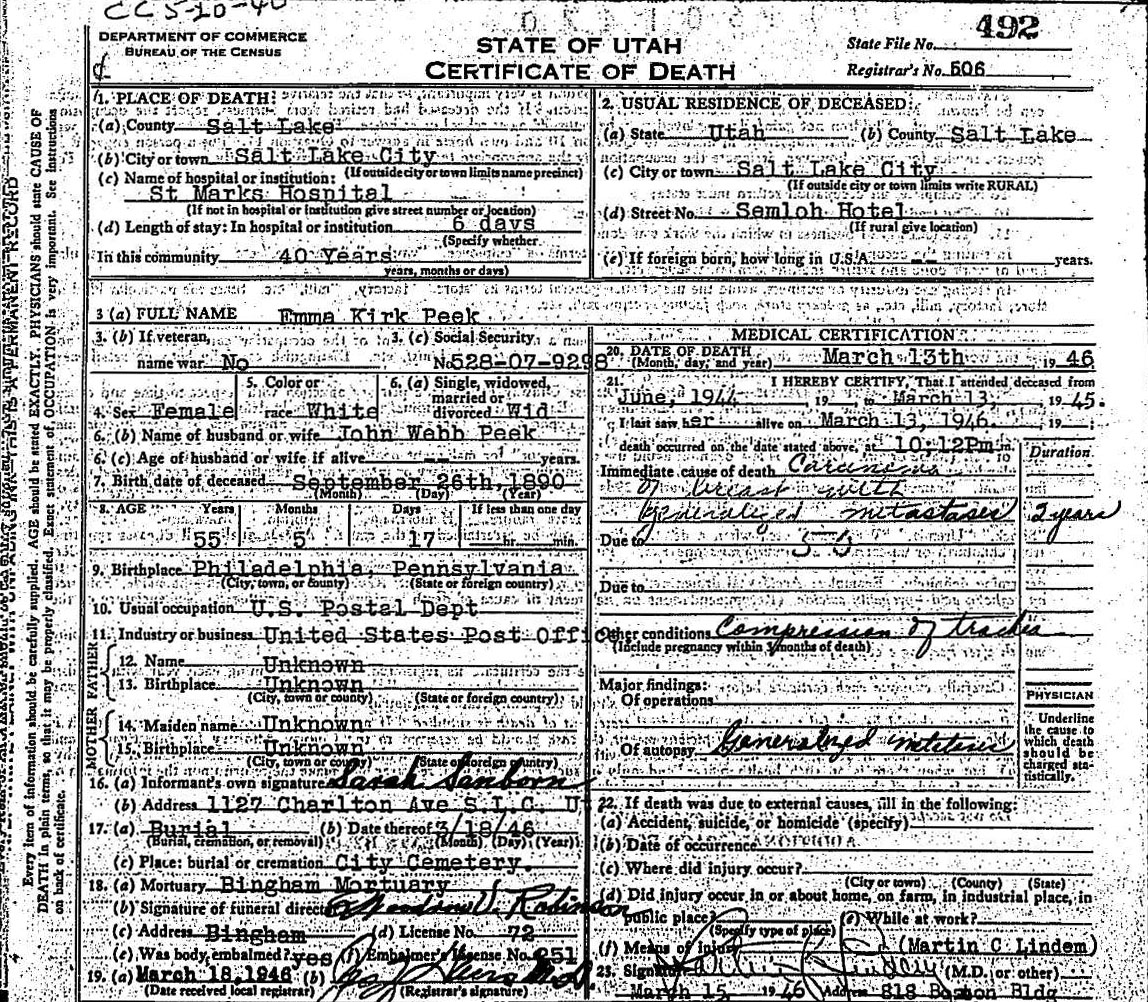 CC 5-20-40
DEPARTMENT OF COMMERCE
BUREAU OF THE CENSUS
STATE OF UTAH
CERTIFICATE OF DEATH
State File No. 492
Registrar's No. 506
1. PLACE OF DEATH:
(a) County Salt Lake
(b) City or town Salt Lake City
(If outside city or town limits name precinct)
(c) Name of hospital or institution:
St Marks Hospital
(If not in hospital or institution give street number or location)
(d) Length of stay: In hospital or institution 6 days
(Specify whether
In this community 40 Years
years, months or days)
2. USUAL RESIDENCE OF DECEASED:
(a) State Utah (b) County Salt Lake
(c) City or town Salt Lake City
(If outside city or town limits write RURAL)
(d) Street No. Semloh Hotel
(If rural give location)
(e) If foreign born, how long in U.S.A. -- years.
3 (a) FULL NAME Emma Kirk Peek
3. (b) If veteran, name war No
3. (c) Social Security No. 528-07-9298
4. Sex Female
5. Color or race White
6. (a) Single, widowed, married or divorced Wid
6. (b) Name of husband or wife John Webb Peek
6. (c) Age of husband or wife if alive -- years.
7. Birth date of deceased September 26th, 1890
(Month) (Day) (Year)
8. AGE Years Months Days If less than one day
55 5 17 hr. min.
9. Birthplace Philadelphia, Pennsylvania
(City, town, or county) (State or foreign country)
10. Usual occupation U.S. Postal Dept
11. Industry or business United States Post Office
FATHER
12. Name Unknown
13. Birthplace Unknown
(City, town or county) (State or foreign country)
MOTHER
14. Maiden name Unknown
15. Birthplace Unknown
(City, town or county) (State or foreign country)
16. (a) Informant's own signature Sarah Sanborn
(b) Address 1127 Charlton Ave S.L.C. Ut
17. (a) Burial (b) Date thereof 3/18/46
(Burial, cremation, or removal) (Month) (Day) (Year)
(c) Place: burial or cremation City Cemetery.
18. (a) Mortuary Bingham Mortuary
(b) Signature of funeral director Woodrow V. Robinson
(c) Address Bingham (d) License No. 72
(e) Was body embalmed? yes (f) Embalmer's License No. 251
19. (a) March 18, 1946 (b) M.D.
(Date received local registrar) (Registrar's signature)
MEDICAL CERTIFICATION
20. DATE OF DEATH March 13th 19 46
(Month, day, and year)
21. I HEREBY CERTIFY, That I attended deceased from
June, 1944 19 to March 13, 1945.
I last saw her alive on March 13, 1946. 19
death occurred on the date stated above, at 10:12Pm m.
Duration
Immediate cause of death Carcinoma
of breast with
Generalized metastases 2 years
Due to 50
Due to
Other conditions Compression of trachea
(Include pregnancy within 3 months of death)
Major findings:
Of operations
Of autopsy Generalized metastases
PHYSICIAN
Underline
the cause to
which death
should be
charged sta-
tistically.
22. If death was due to external causes, fill in the following:
(a) Accident, suicide, or homicide (specify)
(b) Date of occurrence
(c) Where did injury occur?
(City or town) (County) (State)
(d) Did injury occur in or about home, on farm, in industrial place, in
public place? (e) While at work?
(Specify type of place)
(f) Means of injury (Martin C Lindem)
23. Signature Martin C Lindem (M.D. or other)
March 15, 1946 Address 818 Boston Bldg
Every item of information should be carefully supplied. AGE should be stated EXACTLY. PHYSICIANS should state CAUSE OF
DEATH in plain terms, so that it may be properly classified. Exact statement of OCCUPATION is very important. See instructions
on back of certificate.